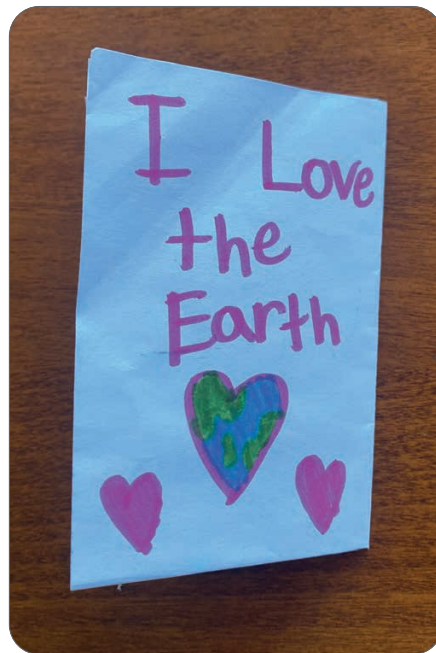 I Love
the
Earth